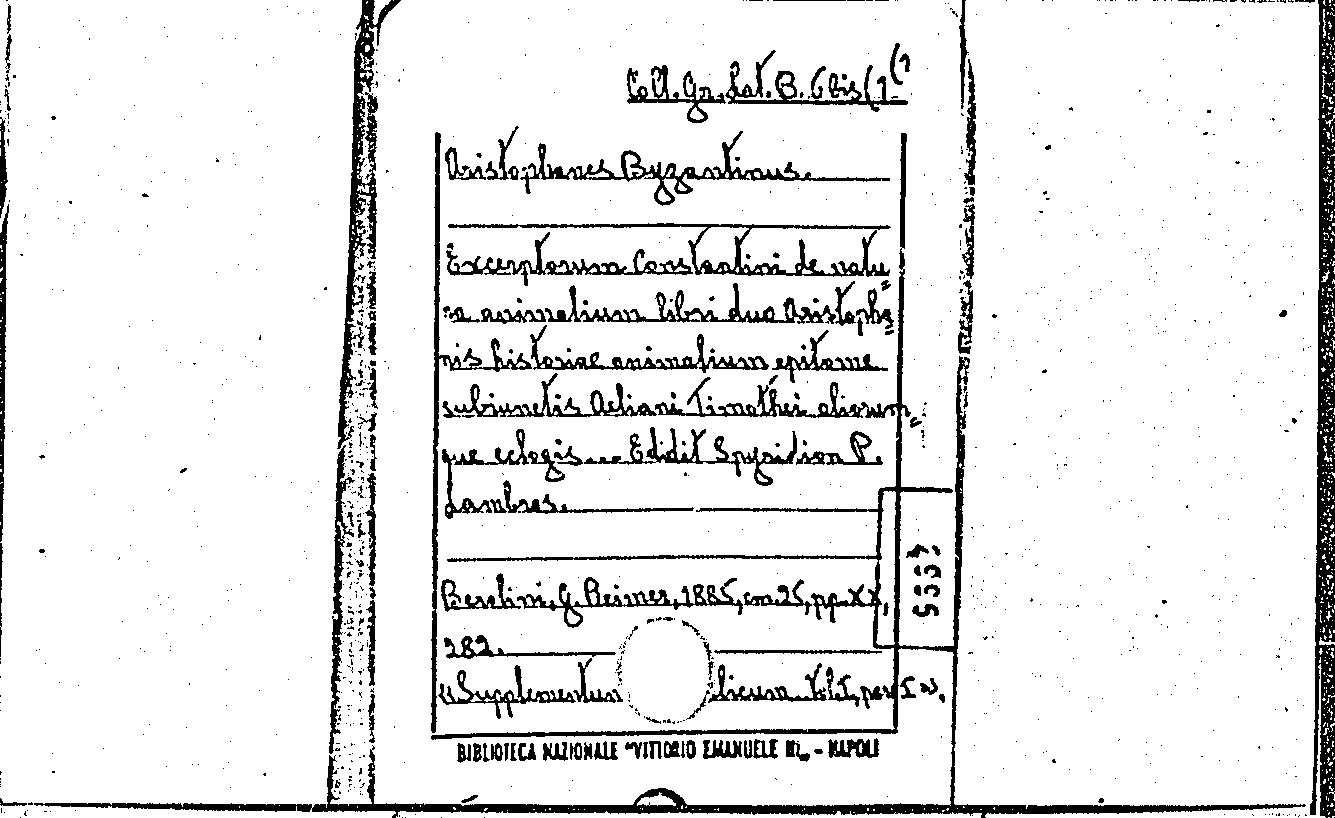 Coll. Gr. Lat. B. 6 bis (1 (1
Aristophanes Byzantinus.
Excerptorum Constantini de natu=
ra animalium libri duo Aristopha=
nis historiae animalium epitome
subiunctis Aeliani Timothei aliorum=
que eclogis... Edidit Spyridion P.
Lambros.
Berolini, G. Reimer, 1885, cm. 25, pp. XX,
282.
«Supplementum licum Vol. I, pars I».
BIBLIOTECA NAZIONALE "VITTORIO EMANUELE III„ - NAPOLI